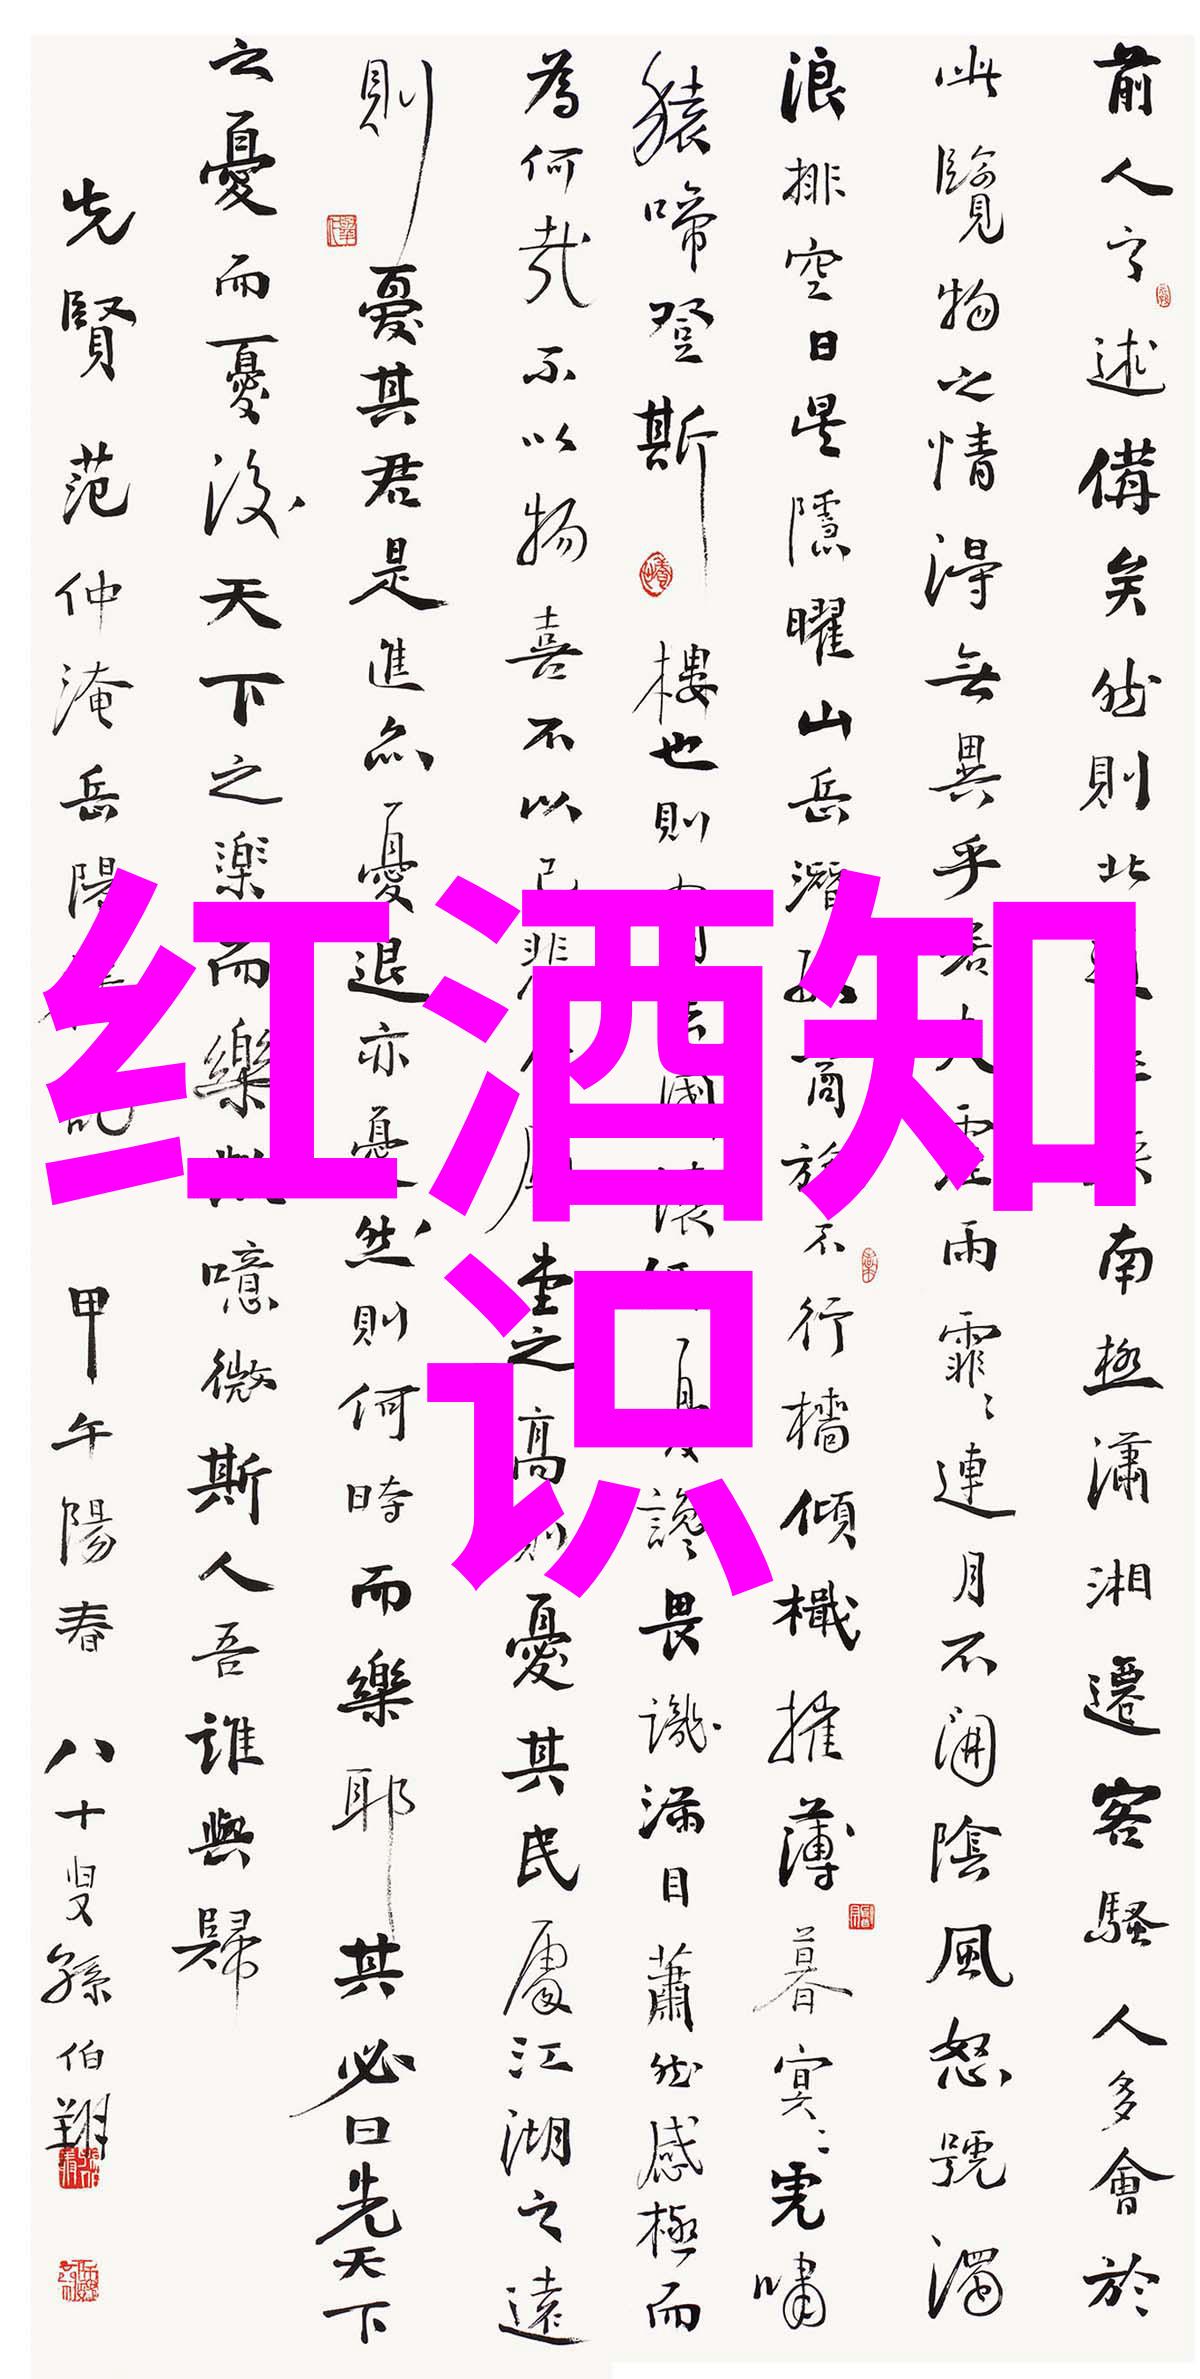 红酒知
识
前人述備矣然則北南極瀟湘遷客騷人多會於
此覽物之情得無異乎若夫霪雨霏霏連月不開陰風怒號濁
浪排空日星隱曜山岳潛形商旅不行檣傾檝摧薄暮冥冥虎嘯
猿啼登斯樓也則有去國懷憂讒畏譏滿目蕭然感極而
為何哉不以物喜不以己悲居堂之高則憂其民處江湖之遠
則憂其君是進亦憂退亦憂然則何時而樂耶其必曰先天下
之憂而憂後天下之樂而樂歟噫微斯人吾誰與歸
先賢范仲淹岳陽樓記 甲午陽春 八十叟孫伯翔